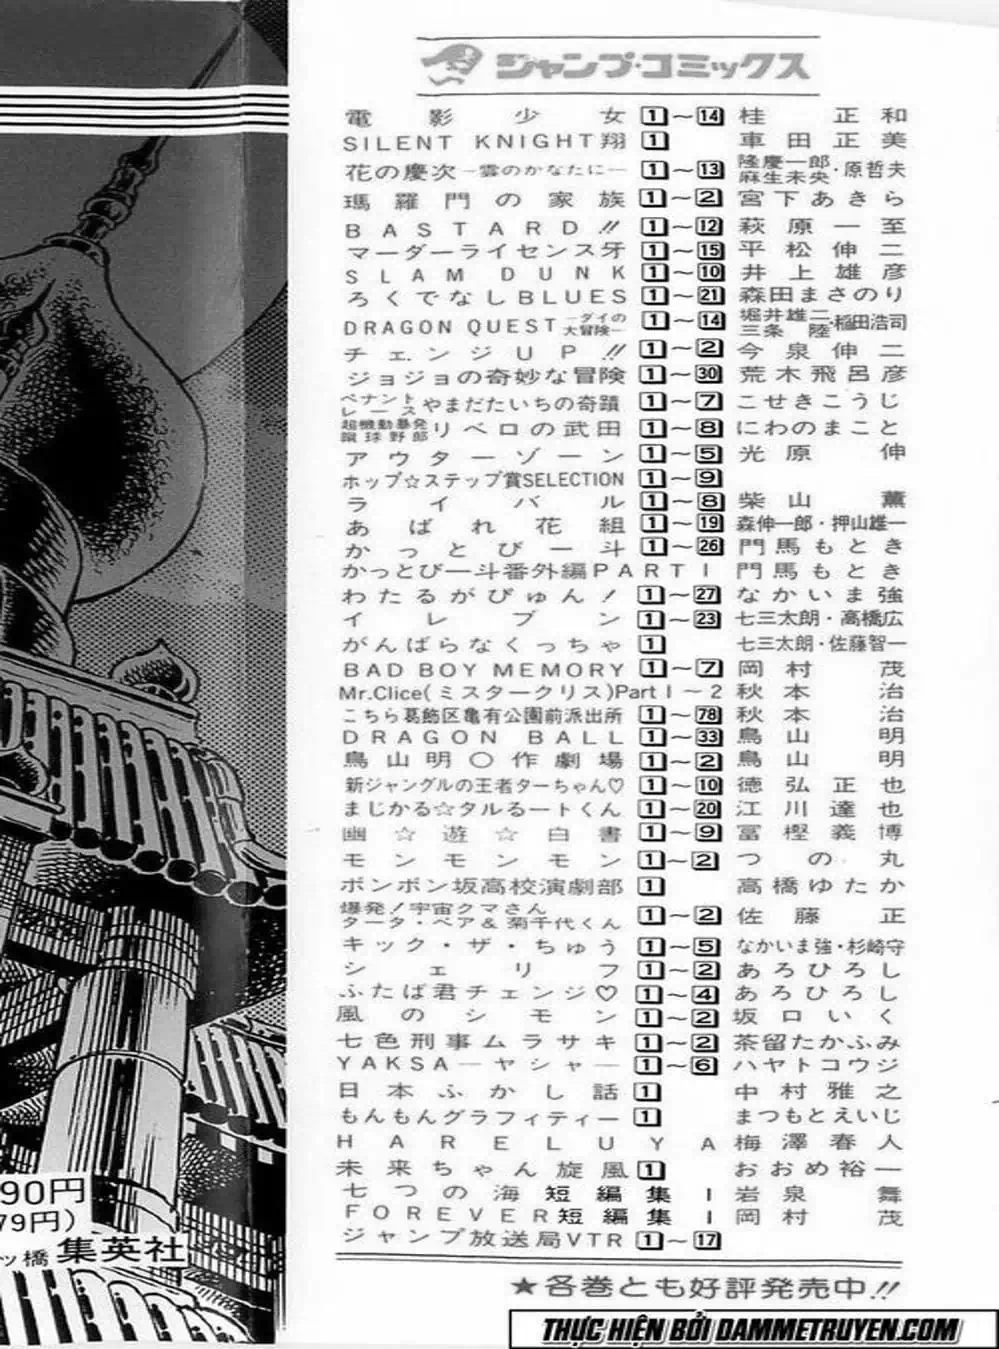 ジャンプ・コミックス
電影少女 1～14 桂正和
SILENT KNIGHT翔 1 車田正美
花の慶次―雲のかなたに― 1～13 隆慶一郎・麻生未央・原哲夫
瑪羅門の家族 1～2 宮下あきら
BASTARD!! 1～12 萩原一至
マーダーライセンス牙 1～15 平松伸二
SLAM DUNK 1～10 井上雄彦
ろくでなしBLUES 1～21 森田まさのり
DRAGON QUEST―ダイの大冒険― 1～14 堀井雄二・三条陸・稲田浩司
チェンジUP!! 1～2 今泉伸二
ジョジョの奇妙な冒険 1～30 荒木飛呂彦
ペナントレースやまだたいちの奇蹟 1～7 こせきこうじ
超機動暴発蹴球野郎リベロの武田 1～8 にわのまこと
アウターゾーン 1～5 光原伸
ホップ☆ステップ賞SELECTION 1～9
ライバル 1～8 柴山薫
あばれ花組 1～19 森伸一郎・押山雄一
かっとび一斗 1～26 門馬もとき
かっとび一斗番外編PART I 門馬もとき
わたるがぴゅん! 1～27 なかいま強
イレブン 1～23 七三太朗・高橋広
がんばらなくっちゃ 1 七三太朗・佐藤智一
BAD BOY MEMORY 1～7 岡村茂
Mr.Clice(ミスタークリス)Part 1～2 秋本治
こちら葛飾区亀有公園前派出所 1～78 秋本治
DRAGON BALL 1～33 鳥山明
鳥山明○作劇場 1～2 鳥山明
新ジャングルの王者ターちゃん♡ 1～10 徳弘正也
まじかる☆タルるートくん 1～20 江川達也
幽☆遊☆白書 1～9 冨樫義博
モンモンモン 1～2 つの丸
ボンボン坂高校演劇部 1 高橋ゆたか
爆発!宇宙クマさん
タータ・ベア&菊千代くん 1～2 佐藤正
キック・ザ・ちゅう 1～5 なかいま強・杉崎守
シェリフ 1～2 あろひろし
ふたば君チェンジ♡ 1～4 あろひろし
風のシモン 1～2 坂口いく
七色刑事ムラサキ 1～2 茶留たかふみ
YAKSA―ヤシャ― 1～6 ハヤトコウジ
日本ふかし話 1 中村雅之
もんもんグラフィティー 1 まつもとえいじ
HARELUYA 梅澤春人
未来ちゃん旋風 1 おおめ裕一
七つの海 短編集 I 岩泉舞
FOREVER 短編集 I 岡村茂
ジャンプ放送局VTR 1～17
★各巻とも好評発売中!!
90円
79円)
ツ橋 集英社
THỰC HIỆN BỞI DAMMETRUYEN.COM